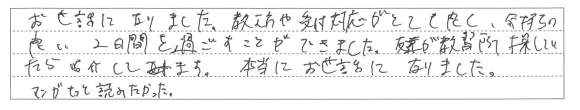 お世話になりました。教え方や受付対応がとても良く、気持ちの
良い2日間を過ごすことができました。友達が教習所探してい
たら紹介します。本当にお世話になりました。
マンガもっと読みたかった。